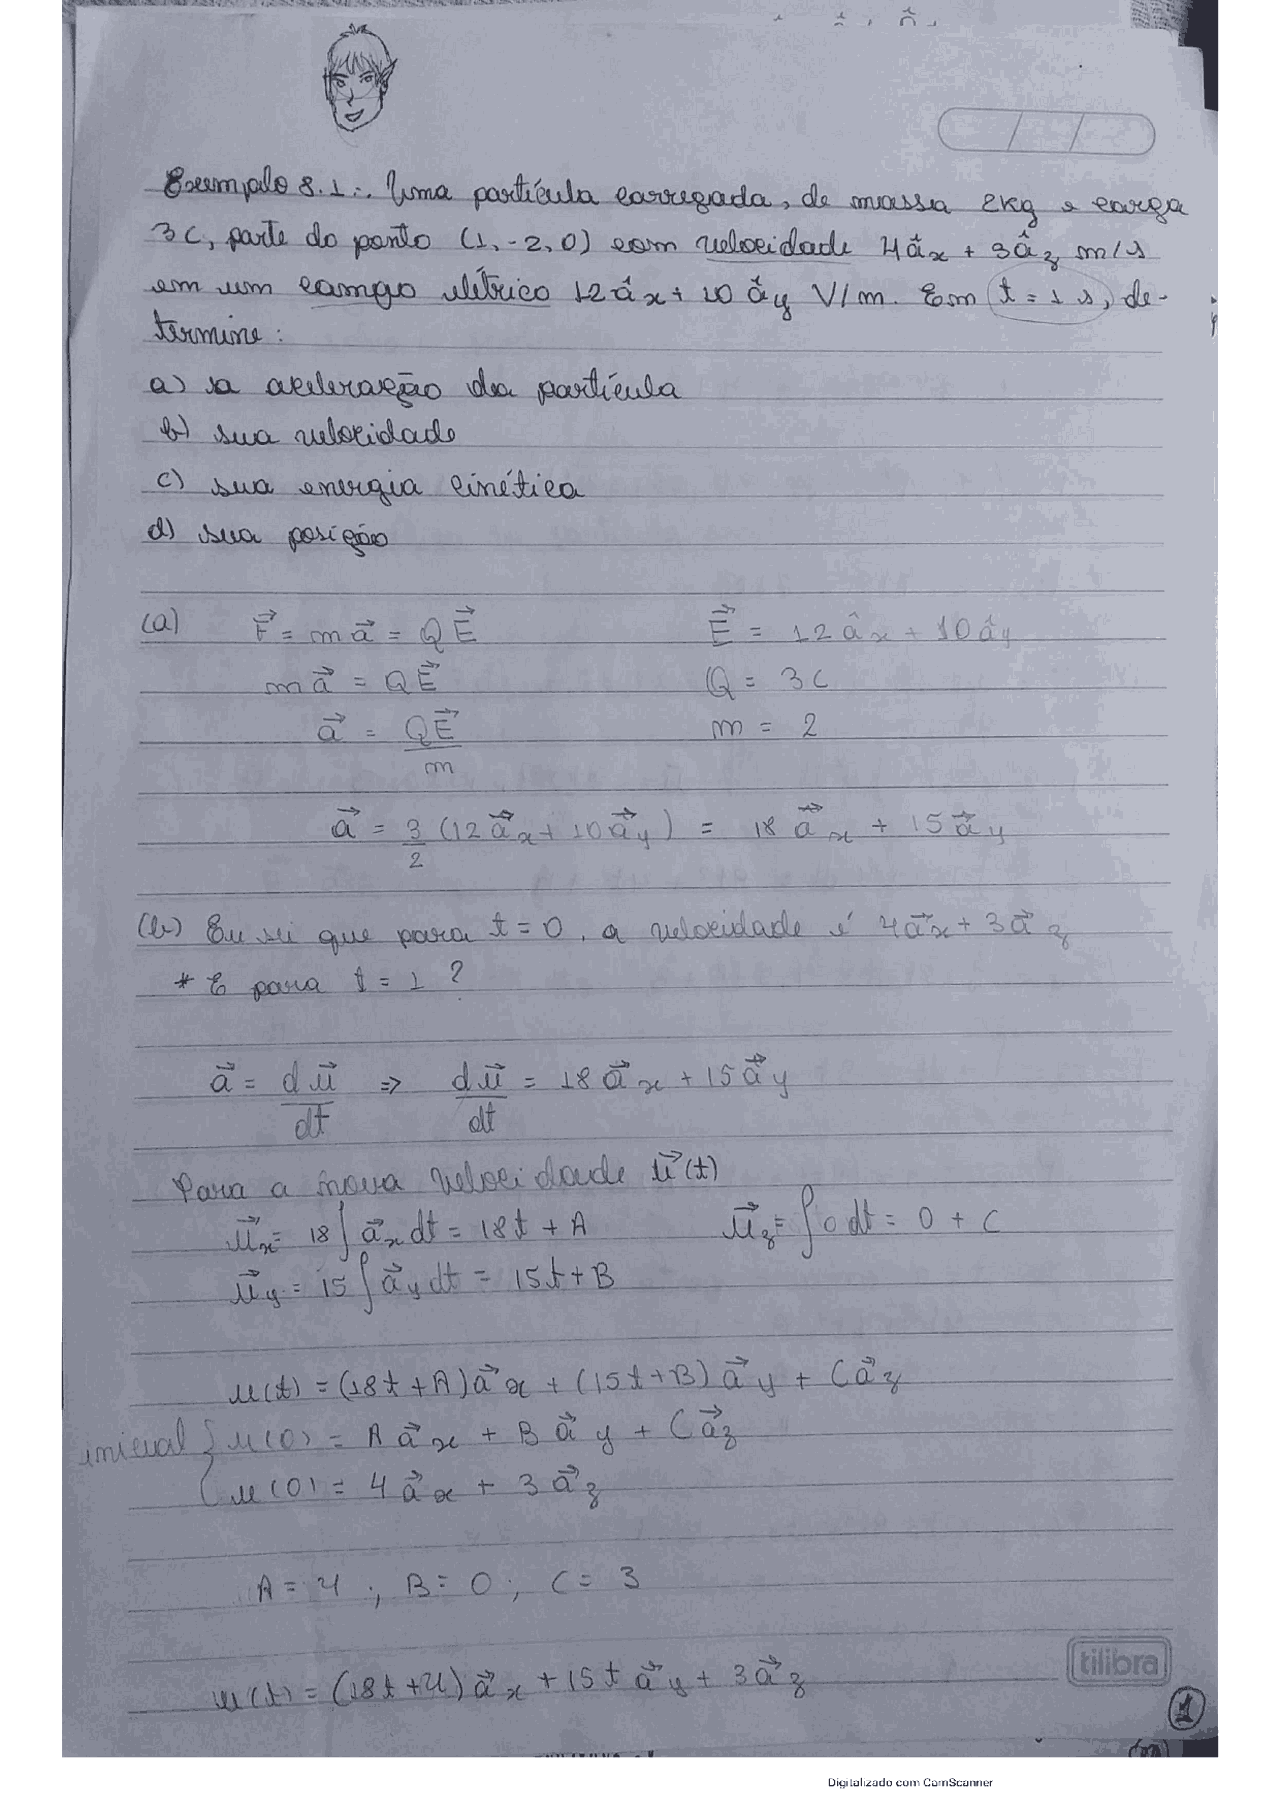 Exemplo 8.1:. Uma partícula carregada, de massa 2kg e carga
3C, parte do ponto (1, -2, 0) com velocidade 4âx + 3âz m/s
em um campo elétrico 12âx + 10 ây V/m. Em t = 1 s, de-
termine:
a) a aceleração da partícula
b) sua velocidade
c) sua energia cinética
d) sua posição
(a) F⃗ = m a⃗ = Q E⃗ E⃗ = 12 âx + 10 ây
m a⃗ = Q E⃗ Q = 3C
a⃗ = Q E⃗ / m m = 2
a⃗ = 3/2 (12 a⃗x + 10 a⃗y) = 18 a⃗x + 15 a⃗y
(b) Eu sei que para t = 0, a velocidade é 4a⃗x + 3a⃗z
* E para t = 1 ?
a⃗ = du⃗/dt => du⃗/dt = 18 a⃗x + 15 a⃗y
Para a nova velocidade u⃗(t)
u⃗x = 18 ∫ a⃗x dt = 18t + A u⃗z = ∫ 0 dt = 0 + C
u⃗y = 15 ∫ a⃗y dt = 15t + B
u(t) = (18t + A) a⃗x + (15t + B) a⃗y + C a⃗z
inicial { u(0) = A a⃗x + B a⃗y + C a⃗z
u(0) = 4 a⃗x + 3 a⃗z
A = 4 ; B = 0 ; C = 3
u(t) = (18t + 4) a⃗x + 15t a⃗y + 3 a⃗z
tilibra
1
Digitalizado com CamScanner